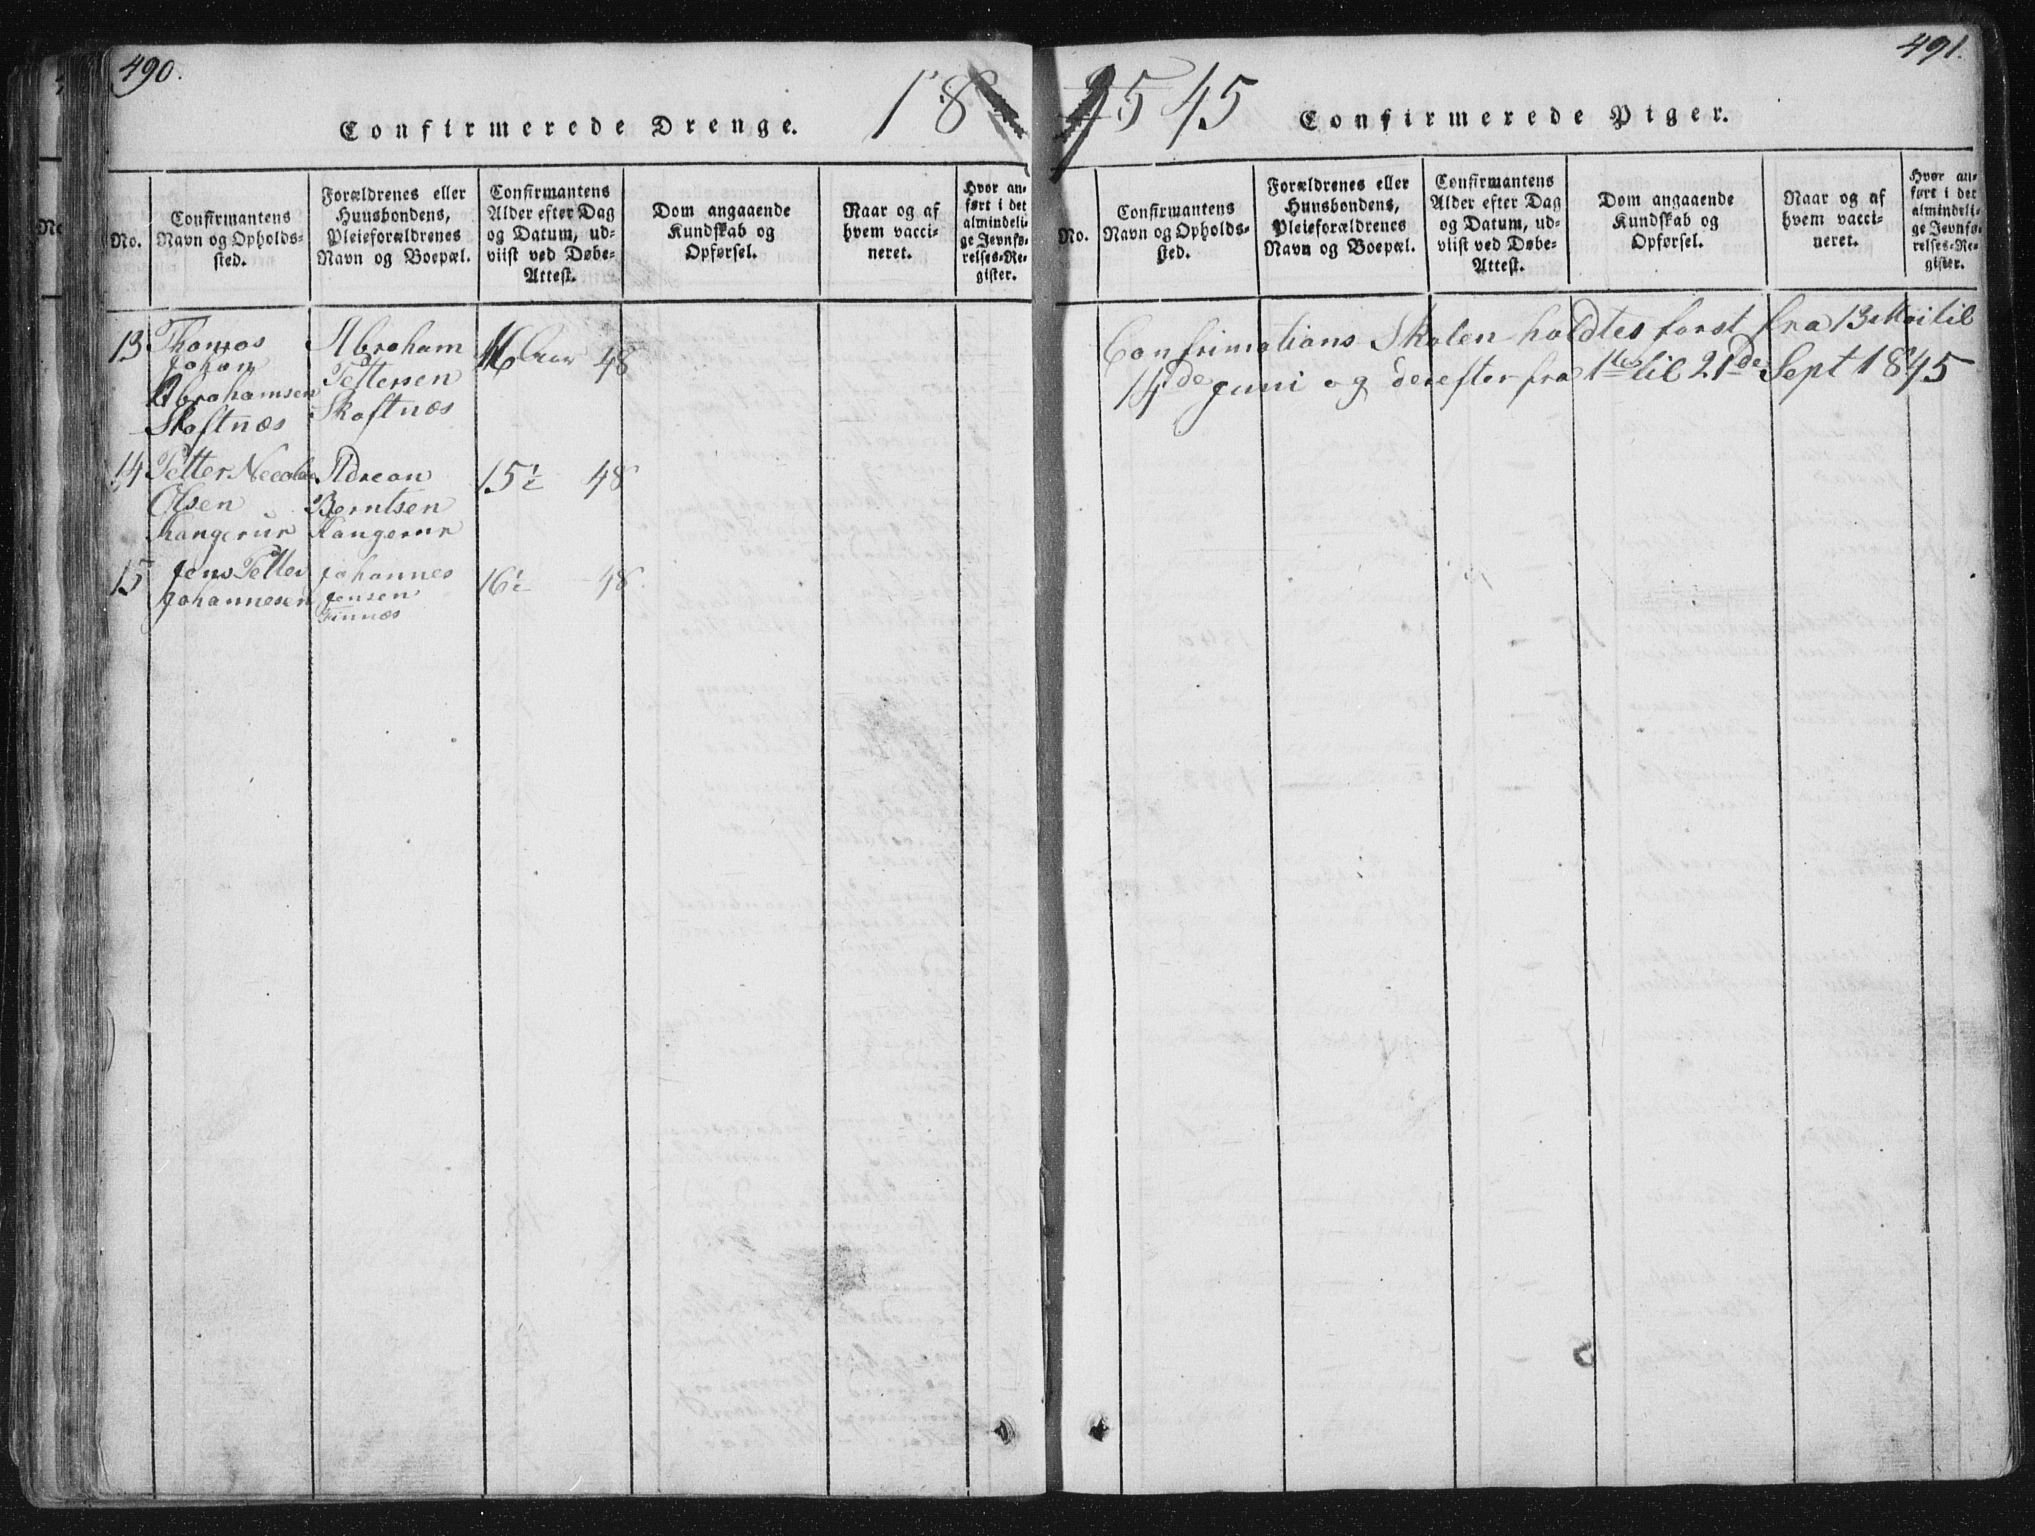 490.
Confirmerede Drenge.
18
No.
Confirmantens
Navn og Opholds-
sted.
Forældrenes eller
Huusbondens,
Pleieforældrenes
Navn og Boepæl.
Confirmantens
Alder efter Dag
og Datum, ud-
viist ved Døbe-
Attest.
Dom angaaende
Kundskab og
Opførsel.
Naar og af
hvem vacci-
neret.
Hvor an-
ført i det
almindeli-
ge Jevnfø-
relses-Re-
gister.
13 Thomas Abraham 16 Aar 48
Johan Pettersen
Abrahamsen Skaftnæs
Skaftnæs
14 Petter Adrean 15½ 48
Olsen Berntsen
Kangerur Kangerur
15 Jens Petter Johannes 16½ 48
Johannesen Jensen
Finnæs
491.
45
Confirmerede Piger.
No.
Confirmantens
Navn og Opholds-
sted.
Forældrenes eller
Huusbondens,
Pleieforældrenes
Navn og Boepæl.
Confirmantens
Alder efter Dag
og Datum, ud-
viist ved Døbe-
Attest.
Dom angaaende
Kundskab og
Opførsel.
Naar og af
hvem vacci-
neret.
Hvor an-
ført i det
almindeli-
ge Jevnfø-
relses-Re-
gister.
Confrimations Skolen holdtes forst fra 13 Mai til
14de Juni og derefter fra 1te til 21de Sept 1845